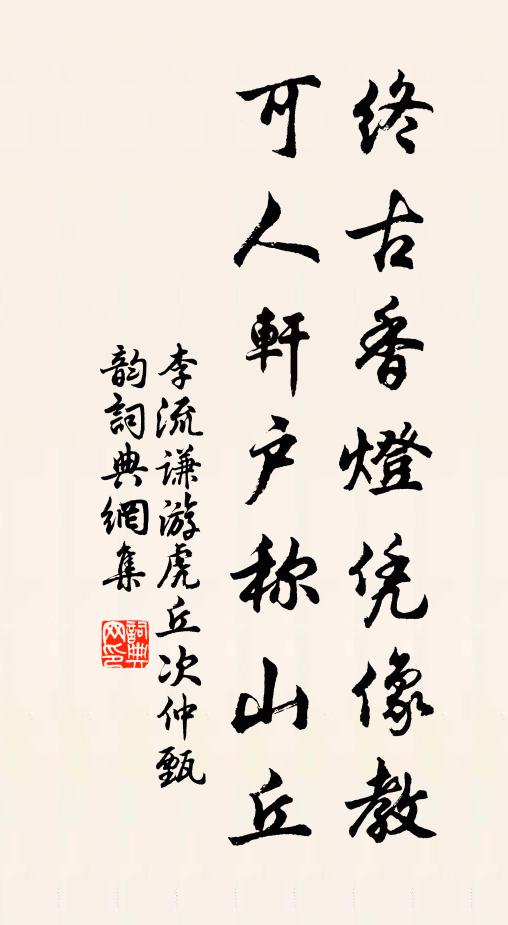 終古香燈凭像教
可人軒户称山丘
李流谦游虎丘次仲甄
韵詞典網集
詞典网印